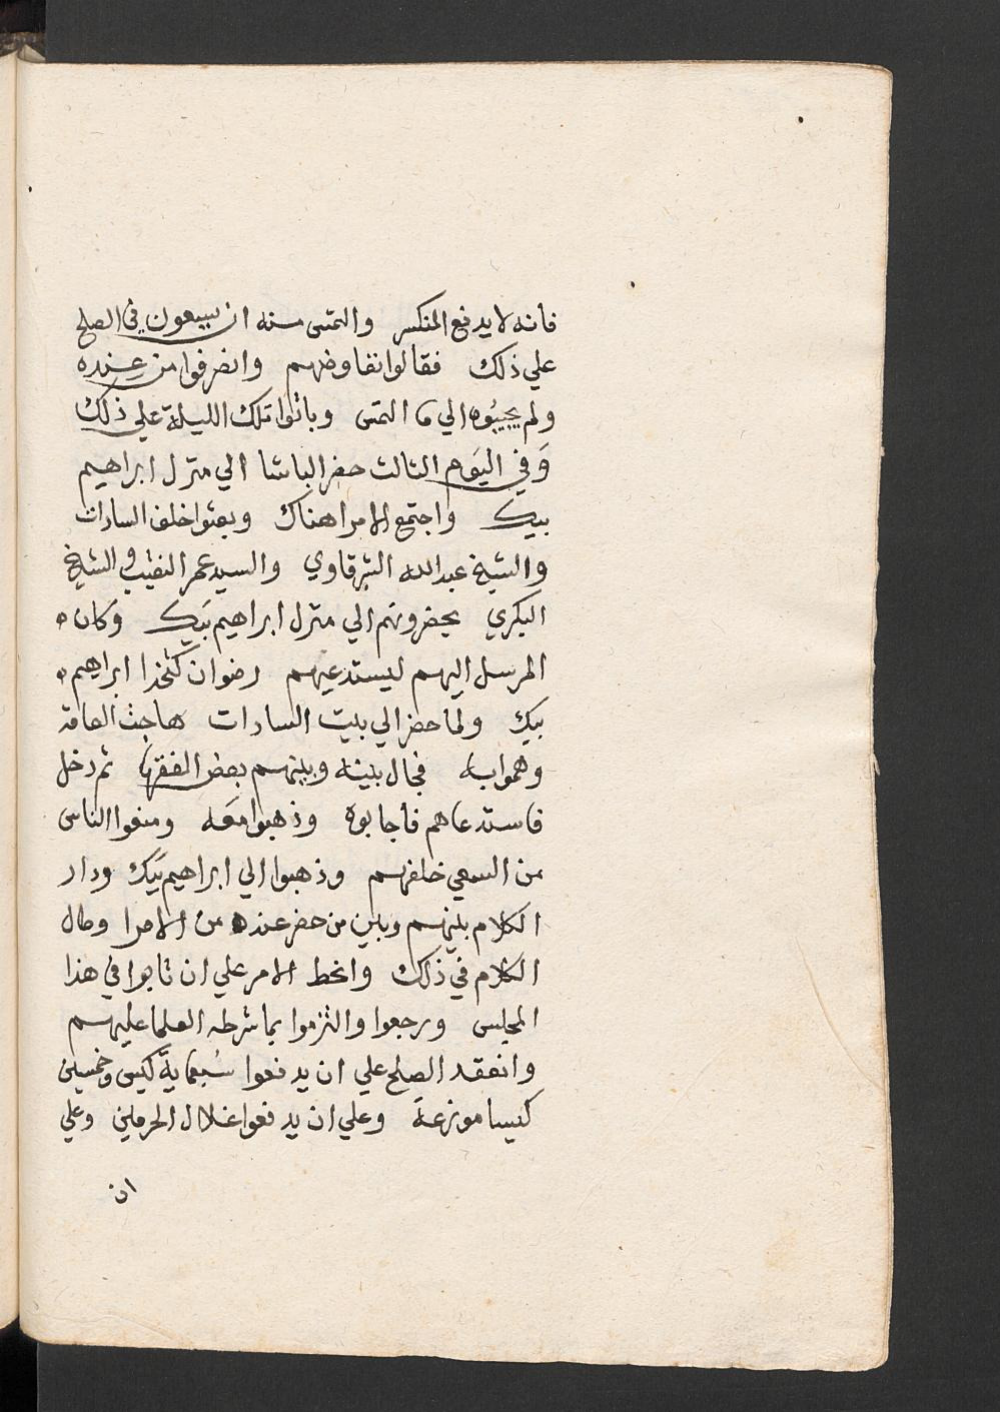 فانه لا يدفع المنكسر والتمس منه ان يسعون في الصلح
علي ذلك فقالوا نفاوضهم وانصرفوا من عنده
ولم يجيبُوه الي ما التمس وباتوا تلك الليلة علي ذلك
وَفي اليَوم الثالث حضر الباشا الي منزل ابراهيم
بيك واجتمع الامرا هناك وبعثوا خلف السادات
والشيخ عبد الله الشرقاوي والسيد عمر النقيب والشيخ
البكري يحضرونهم الي منزل ابراهيم بَيك وكان
المرسل اليهم ليستدعيهم رضوان كتخدا ابراهيم
بيك ولما حضر الي بيت السادات هاجت العامة
وهموا به فحال بينه وبينهم بعض الفقها ثم دخل
فاستدعاهم فاجابوه وذهبوا معَه ومنعوا الناس
من السعي خلفهم وذهبوا الي ابراهيم بَيك ودار
الكلام بينهم وبين من حضر عنده من الامرا وطال
الكلام في ذلك وانحط الامر علي ان تابوا في هذا
المجلس ورجعوا والتزموا بما شرطه العلما عليهم
وانعقد الصلح علي ان يدفعوا سُبعماية كيس وخمسين
كيسا موزعة وعلي ان يدفعوا غلال الحرمين وعلي
ان